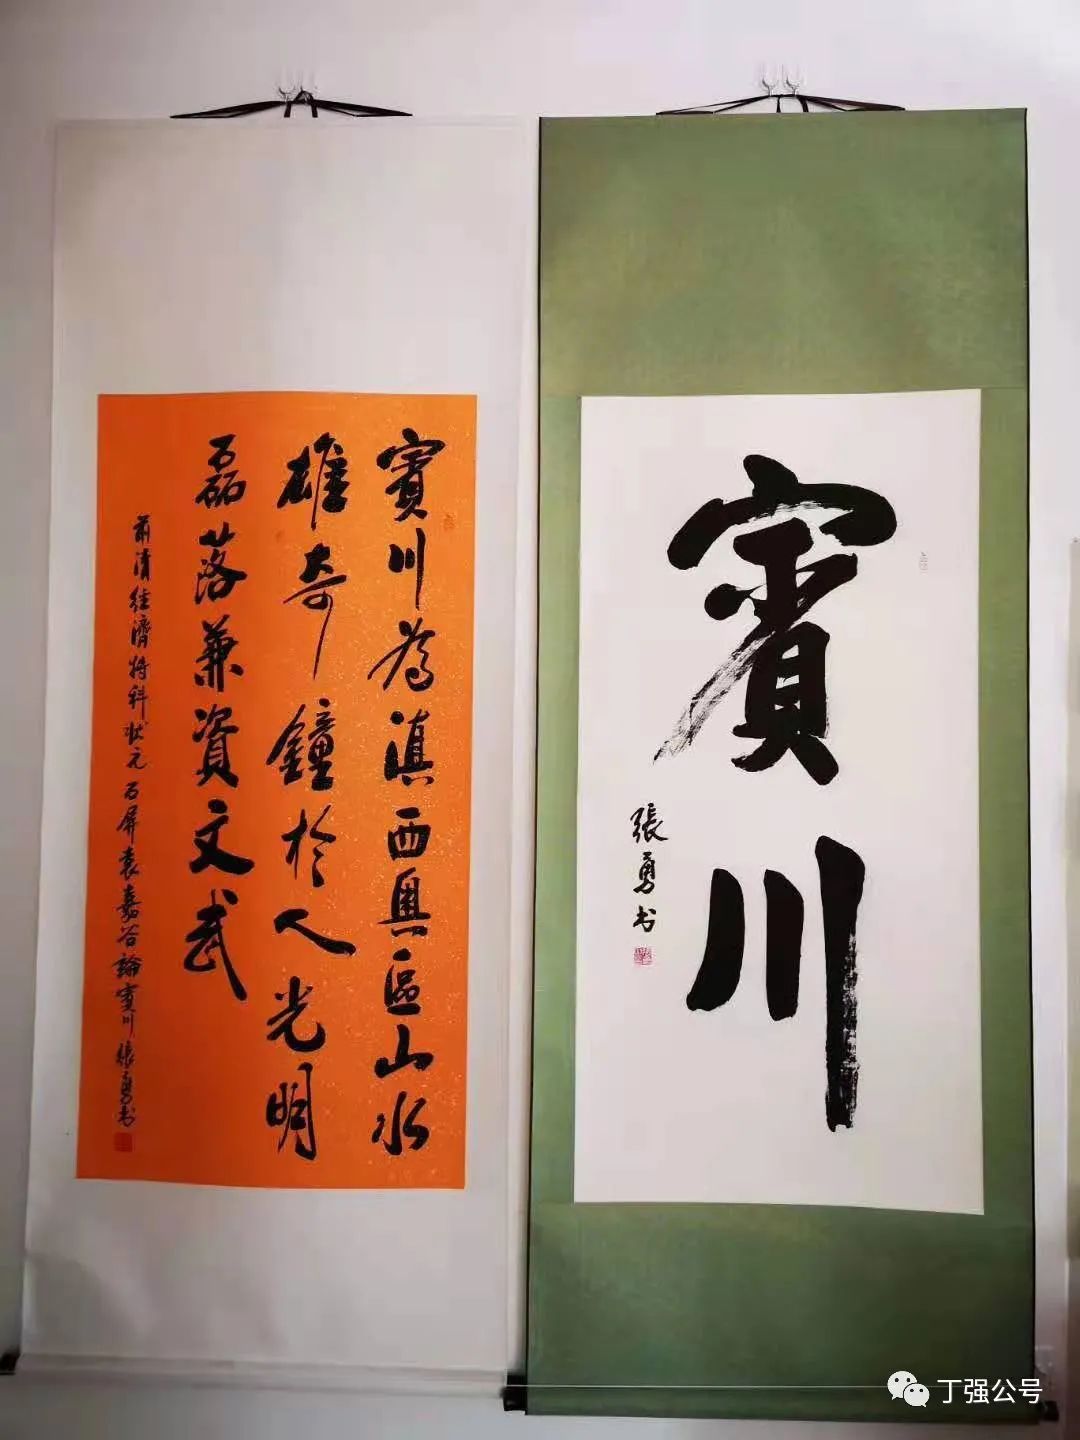 賓川
張勇书
賓川为滇西奥區山水
雄奇鐘於人光明
磊落兼資文武
前清经濟特科状元石屏袁嘉谷論賓川張勇书
丁强公号